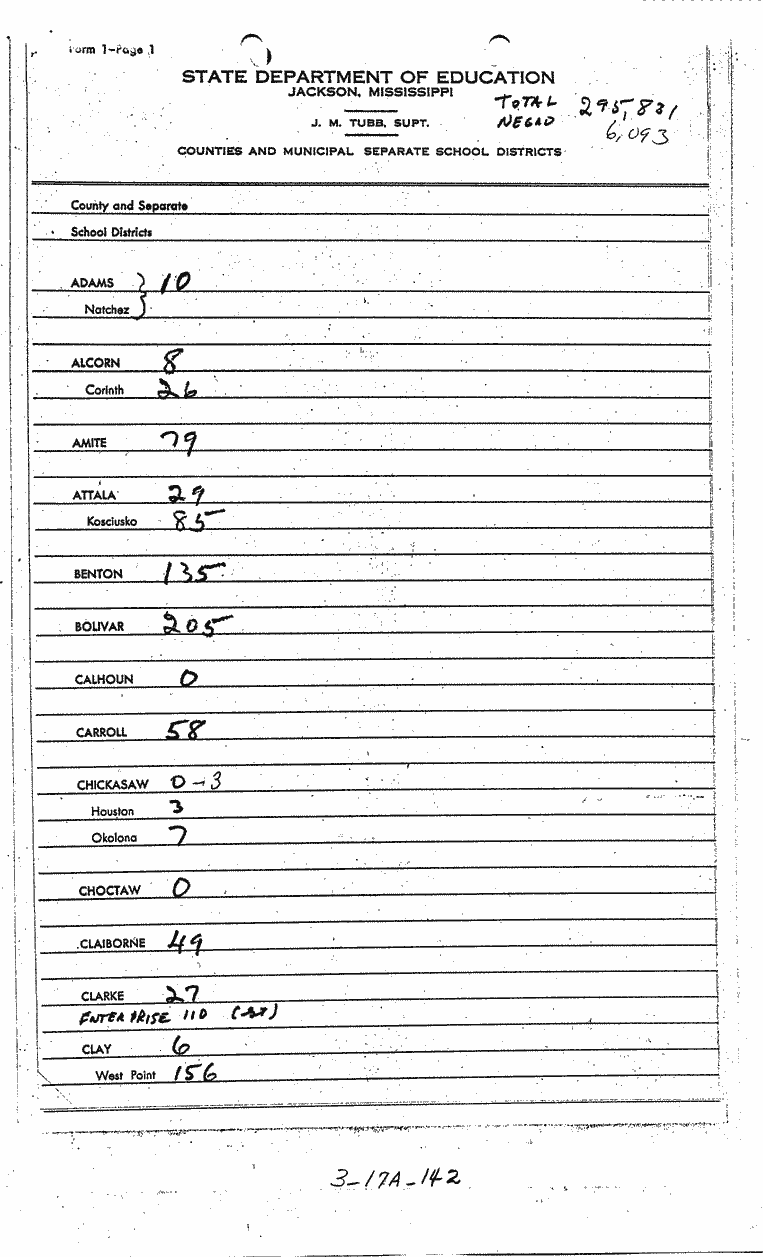 Form 1-Page 1
STATE DEPARTMENT OF EDUCATION
JACKSON, MISSISSIPPI
TOTAL 295,831
J. M. TUBB, SUPT.
NEGRO 6,093
COUNTIES AND MUNICIPAL SEPARATE SCHOOL DISTRICTS
County and Separate
School Districts
ADAMS } 10
Natchez
ALCORN 8
Corinth 26
AMITE 79
ATTALA 29
Kosciusko 85
BENTON 135
BOLIVAR 205
CALHOUN 0
CARROLL 58
CHICKASAW 0-3
Houston 3
Okolona 7
CHOCTAW 0
CLAIBORNE 49
CLARKE 27
ENTERPRISE 110
CLAY 6
West Point 156
3-17A-142